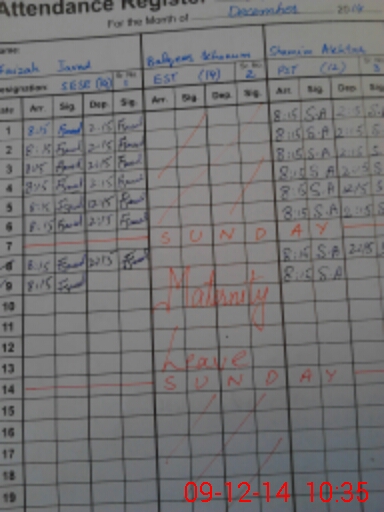 Attendance Register
For the Month of December 2014
Name:
Faizah Javed
Balqees Khanum
Shamim Akhtar
Designation: SESE (14) Sr. No. 1
EST (14) Sr. No. 2
PST (12) Sr. No. 3
Date Arr. Sig. Dep. Sig. Arr. Sig. Dep. Sig. Arr. Sig. Dep. Sig.
1 8:15 2:15 8:15 S.A 2:15 S
2 8:15 2:15 8:15 S.A 2:15 S
3 8:15 2:15 8:15 S.A 2:15 S
4 8:15 2:15 8:15 S.A 2:15 S
5 8:15 2:15 8:15 S.A 2:15 S
6 8:15 2:15 8:15 S.A 2:15 S
7 SUNDAY
8 8:15 2:15 8:15 S.A 2:15 S
9 8:15 8:15 S.A
10 Maternity
11
12
13 Leave
14 SUNDAY
15
16
17
18
19
09-12-14 10:35